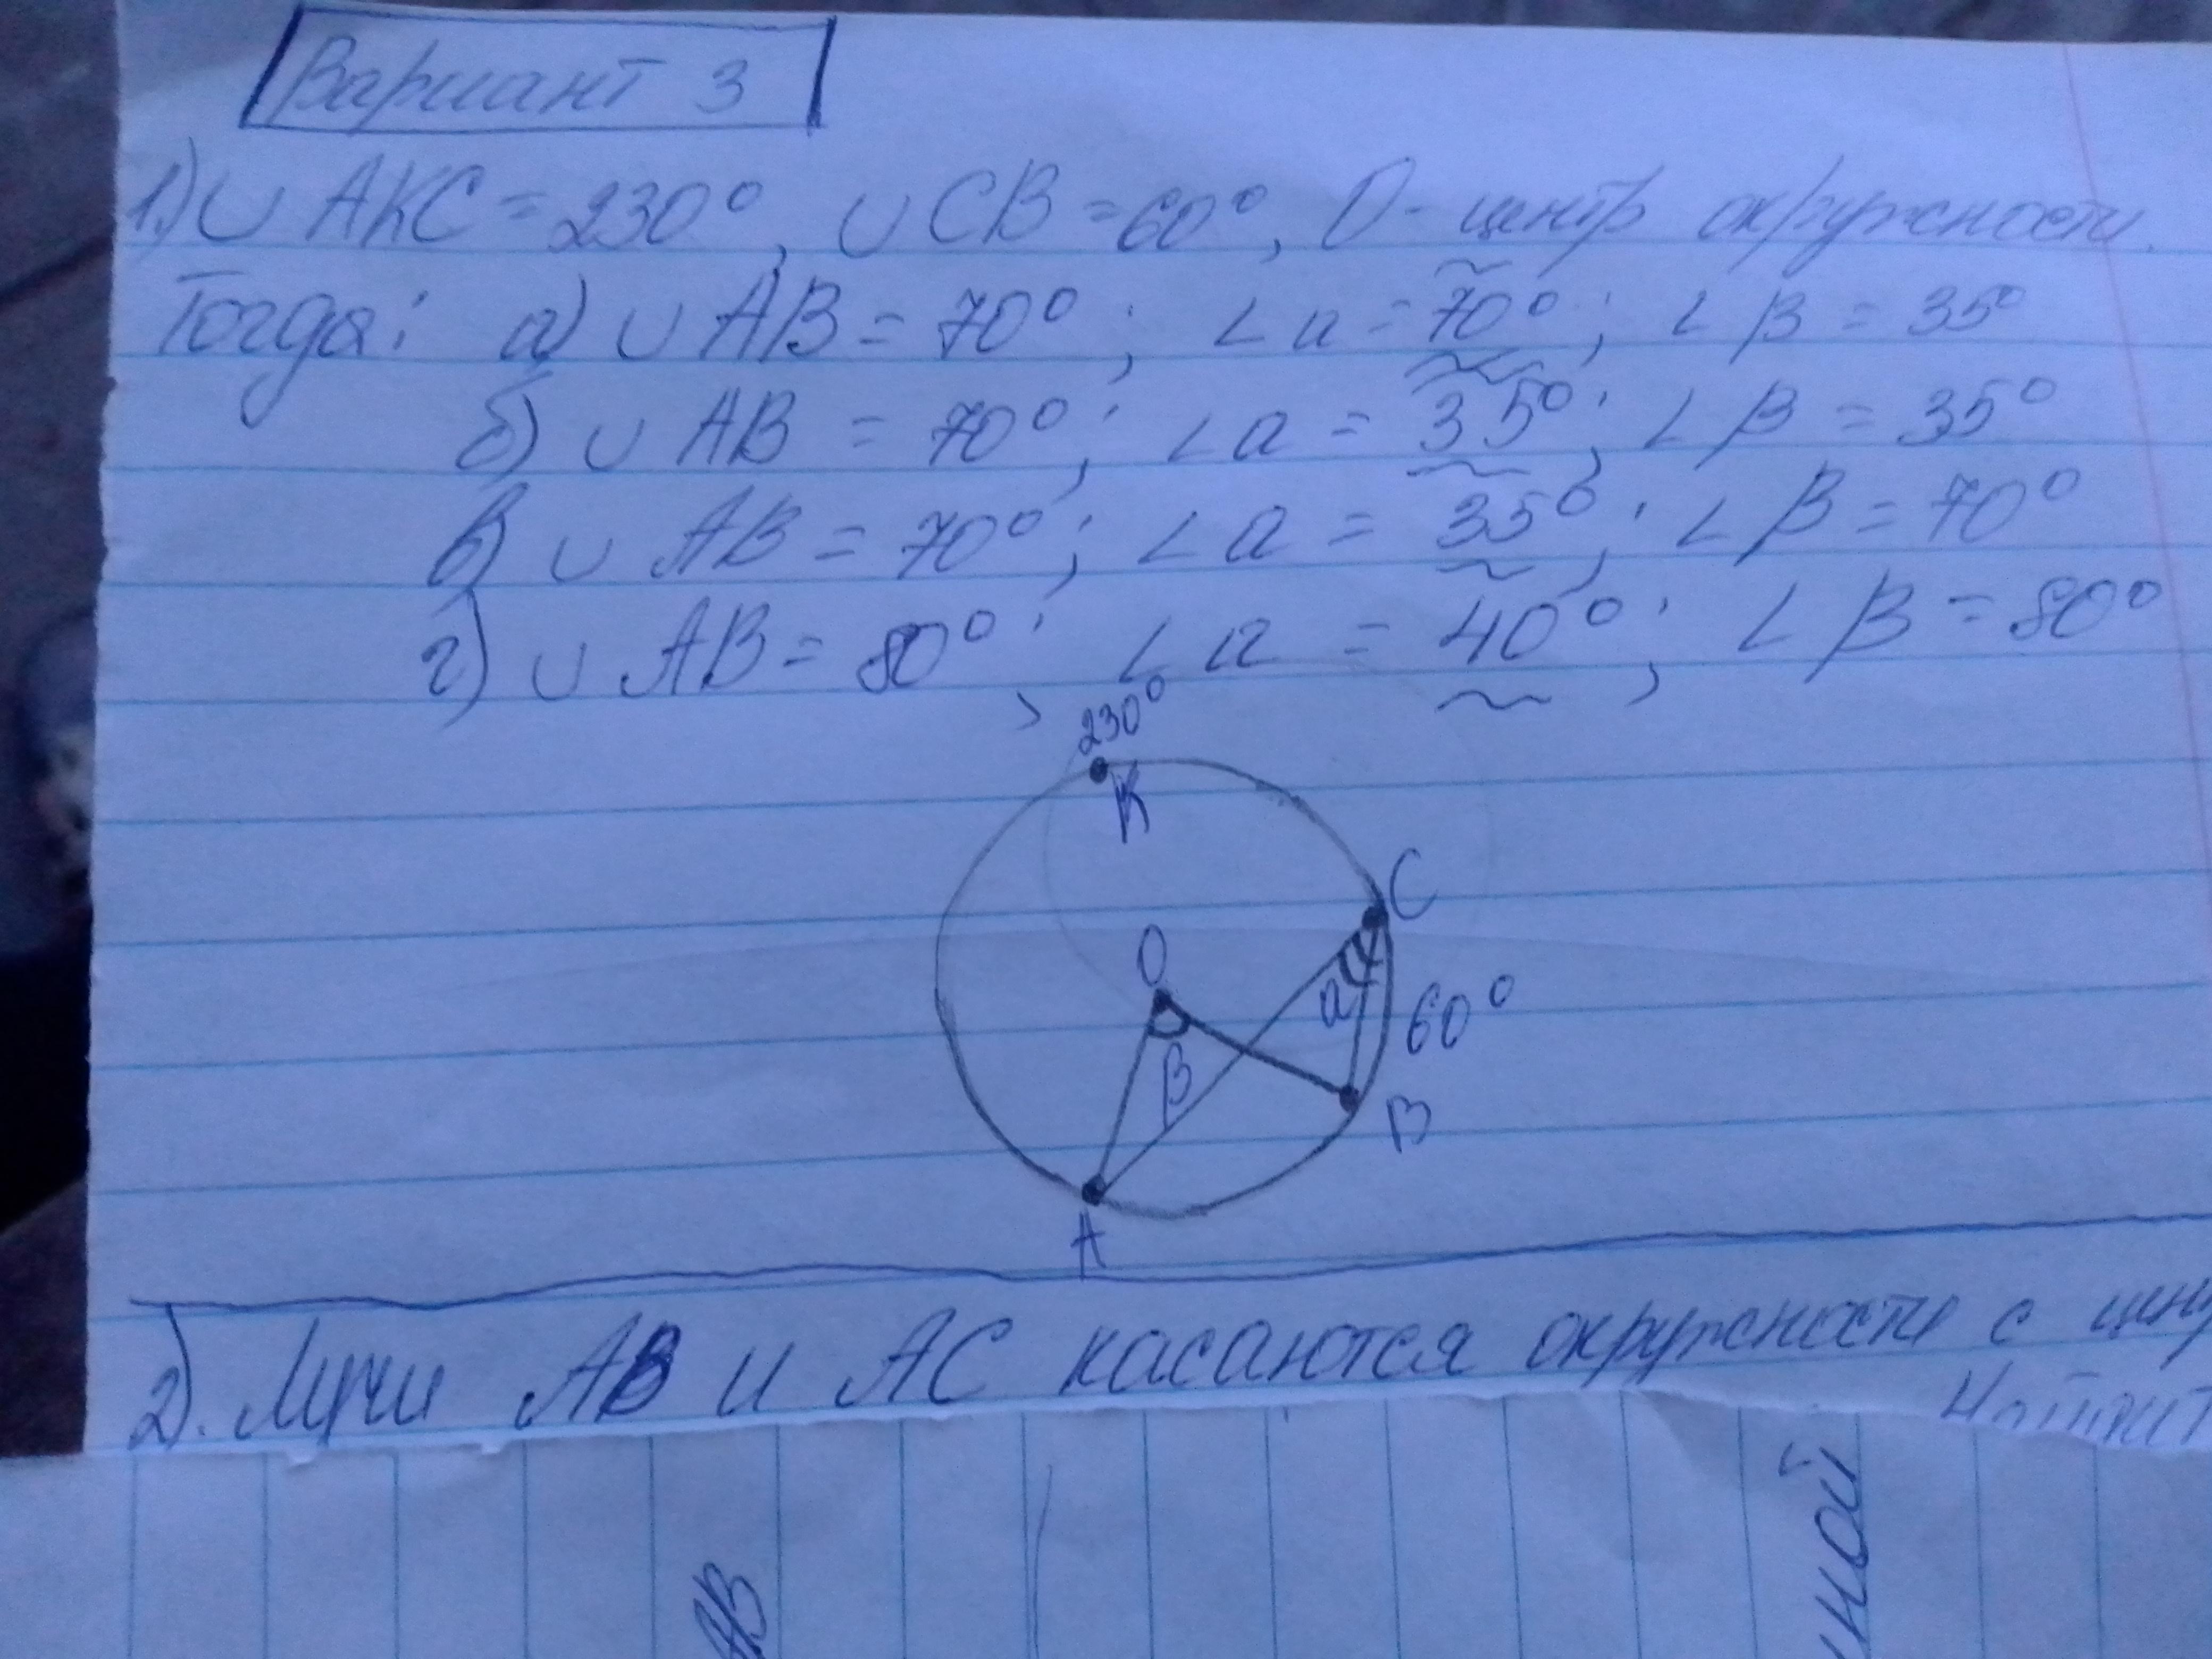 Вариант 3
1.) ∪ AKC = 230°, ∪ CB = 60°, O - центр окружности.
Тогда: а) ∪ AB = 70°; ∠a = 70°; ∠β = 35°
б) ∪ AB = 70°; ∠a = 35°; ∠β = 35°
в) ∪ AB = 70°; ∠a = 35°; ∠β = 70°
г) ∪ AB = 80°; ∠a = 40°; ∠β = 80°
230°
K
C
O
a
60°
β
B
A
2). Лучи AB и AC касаются окружности с
AB
ной